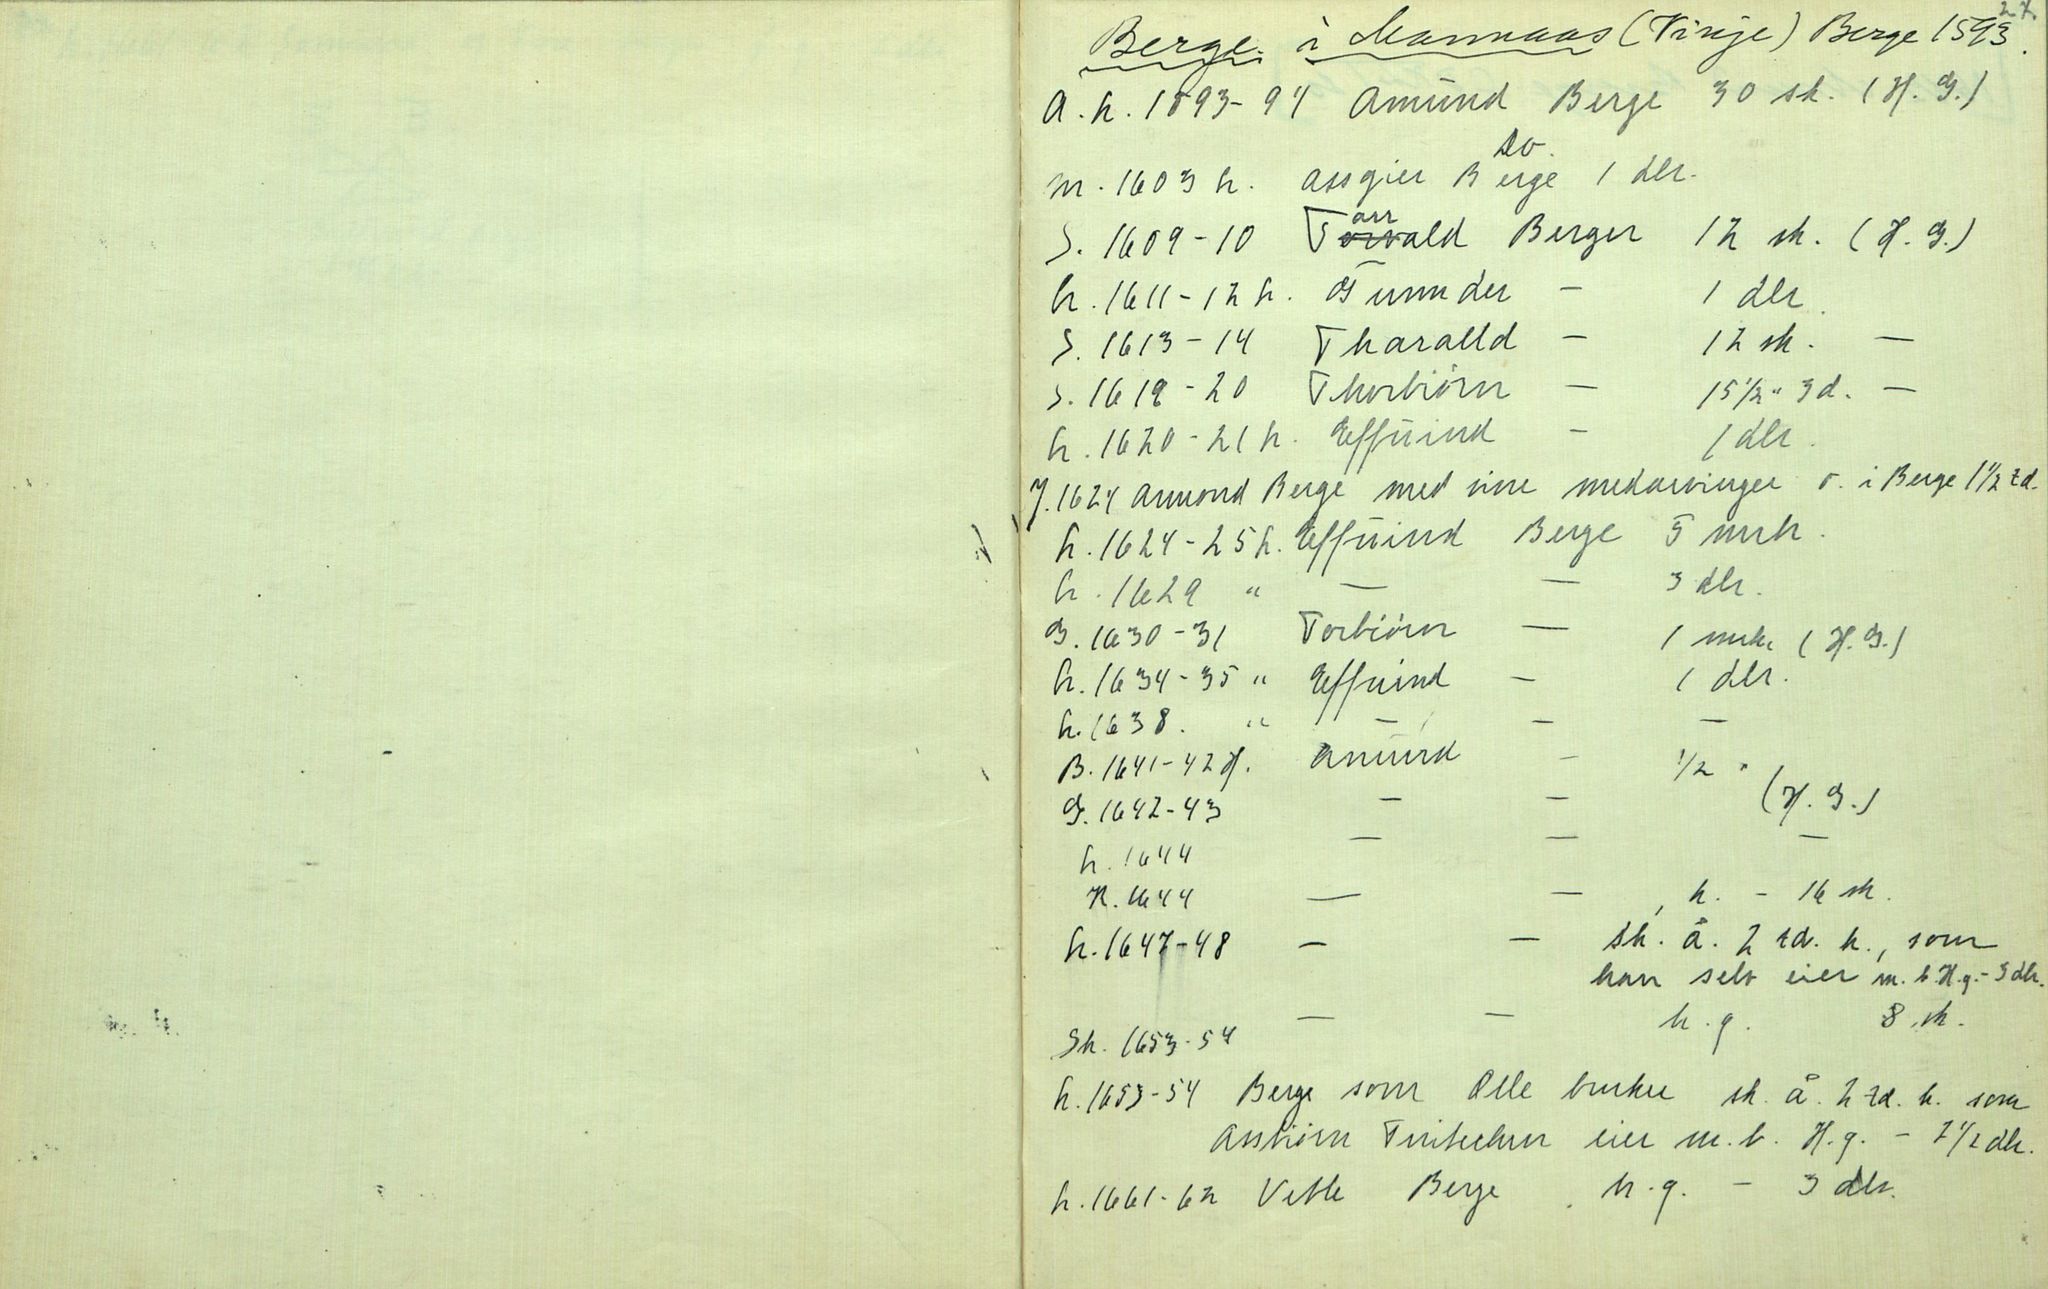 27.
Berge i Mannaas (Vinje) Berge 1593.
A. h. 1593-94 Amund Berge 30 sk. (H. G.)
do.
M. 1603 h. Assgier Berge 1 dlr.
S. 1609-10 Tarrald Berger 12 sk. (H. G.)
h. 1611-12 h. Gunnder - 1 dlr.
S. 1613-14 Tharalld - 12 sk. -
S. 1619-20 Thorbiörn - 15 1/2 " 3 d. -
h. 1620-21 h. Effuind - 1 dlr.
J. 1624 Amond Berge med sine medarvinger o. i Berge 1 1/2 td.
h. 1624-25 h. Effuind Berge 5 mrk.
h. 1629 " - - 3 dlr.
G. 1630-31 Torbiörn - 1 mrk. (H. G.)
h. 1634-35 " Effuind - 1 dlr.
h. 1638. " - - -
B. 1641-42 H. Amund - 1/2 "
G. 1642-43 - - (H. G.)
h. 1644 - - -
K. 1644 - - , h. - 16 sk.
h. 1647-48 - - sk. å. 2 td. k., som
han selv eier m. b. H.g. - 3 dlr.
Sk. 1653-54 - - h. g. 8 sk.
h. 1653-54 Berge som Olle bruker sk. å. 2 td. k. som
Assbiörn eier m. b. H. g. - 2 1/2 dlr.
h. 1661-62 Vetle Berge . h. g. - 3 dlr.